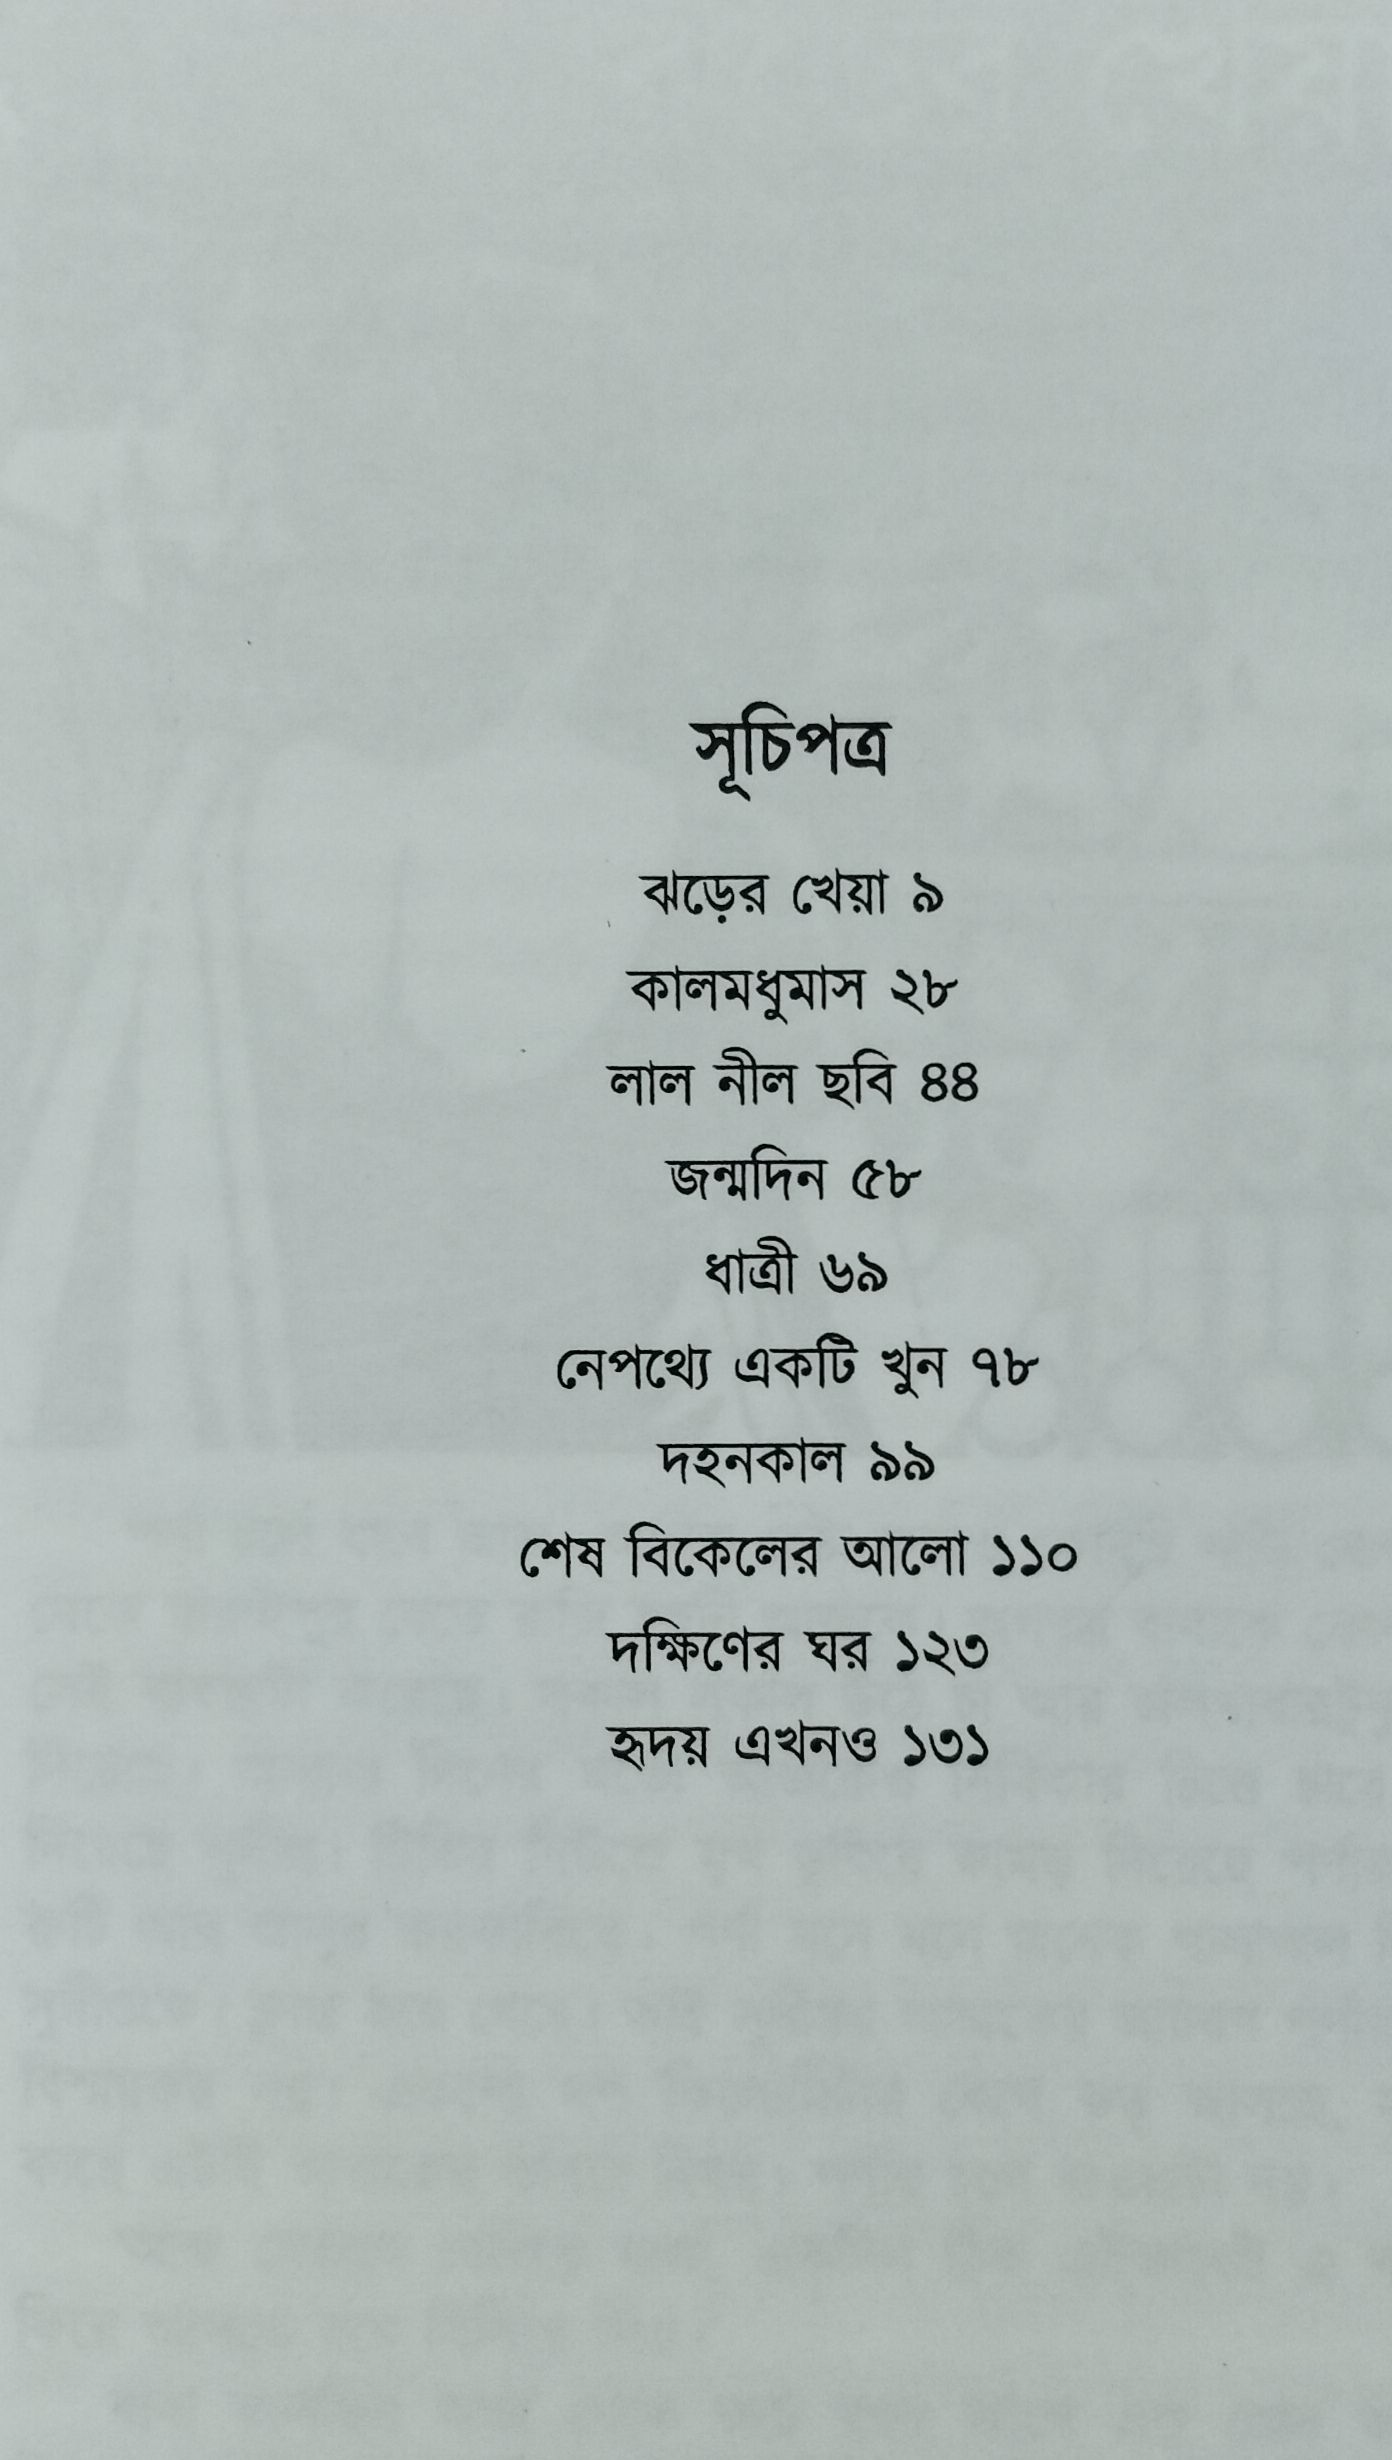 সূচিপত্র
ঝড়ের খেয়া ৯
কালমধুমাস ২৮
লাল নীল ছবি ৪৪
জন্মদিন ৫৮
ধাত্রী ৬৯
নেপথ্যে একটি খুন ৭৮
দহনকাল ৯৯
শেষ বিকেলের আলো ১১০
দক্ষিণের ঘর ১২৩
হৃদয় এখনও ১৩১